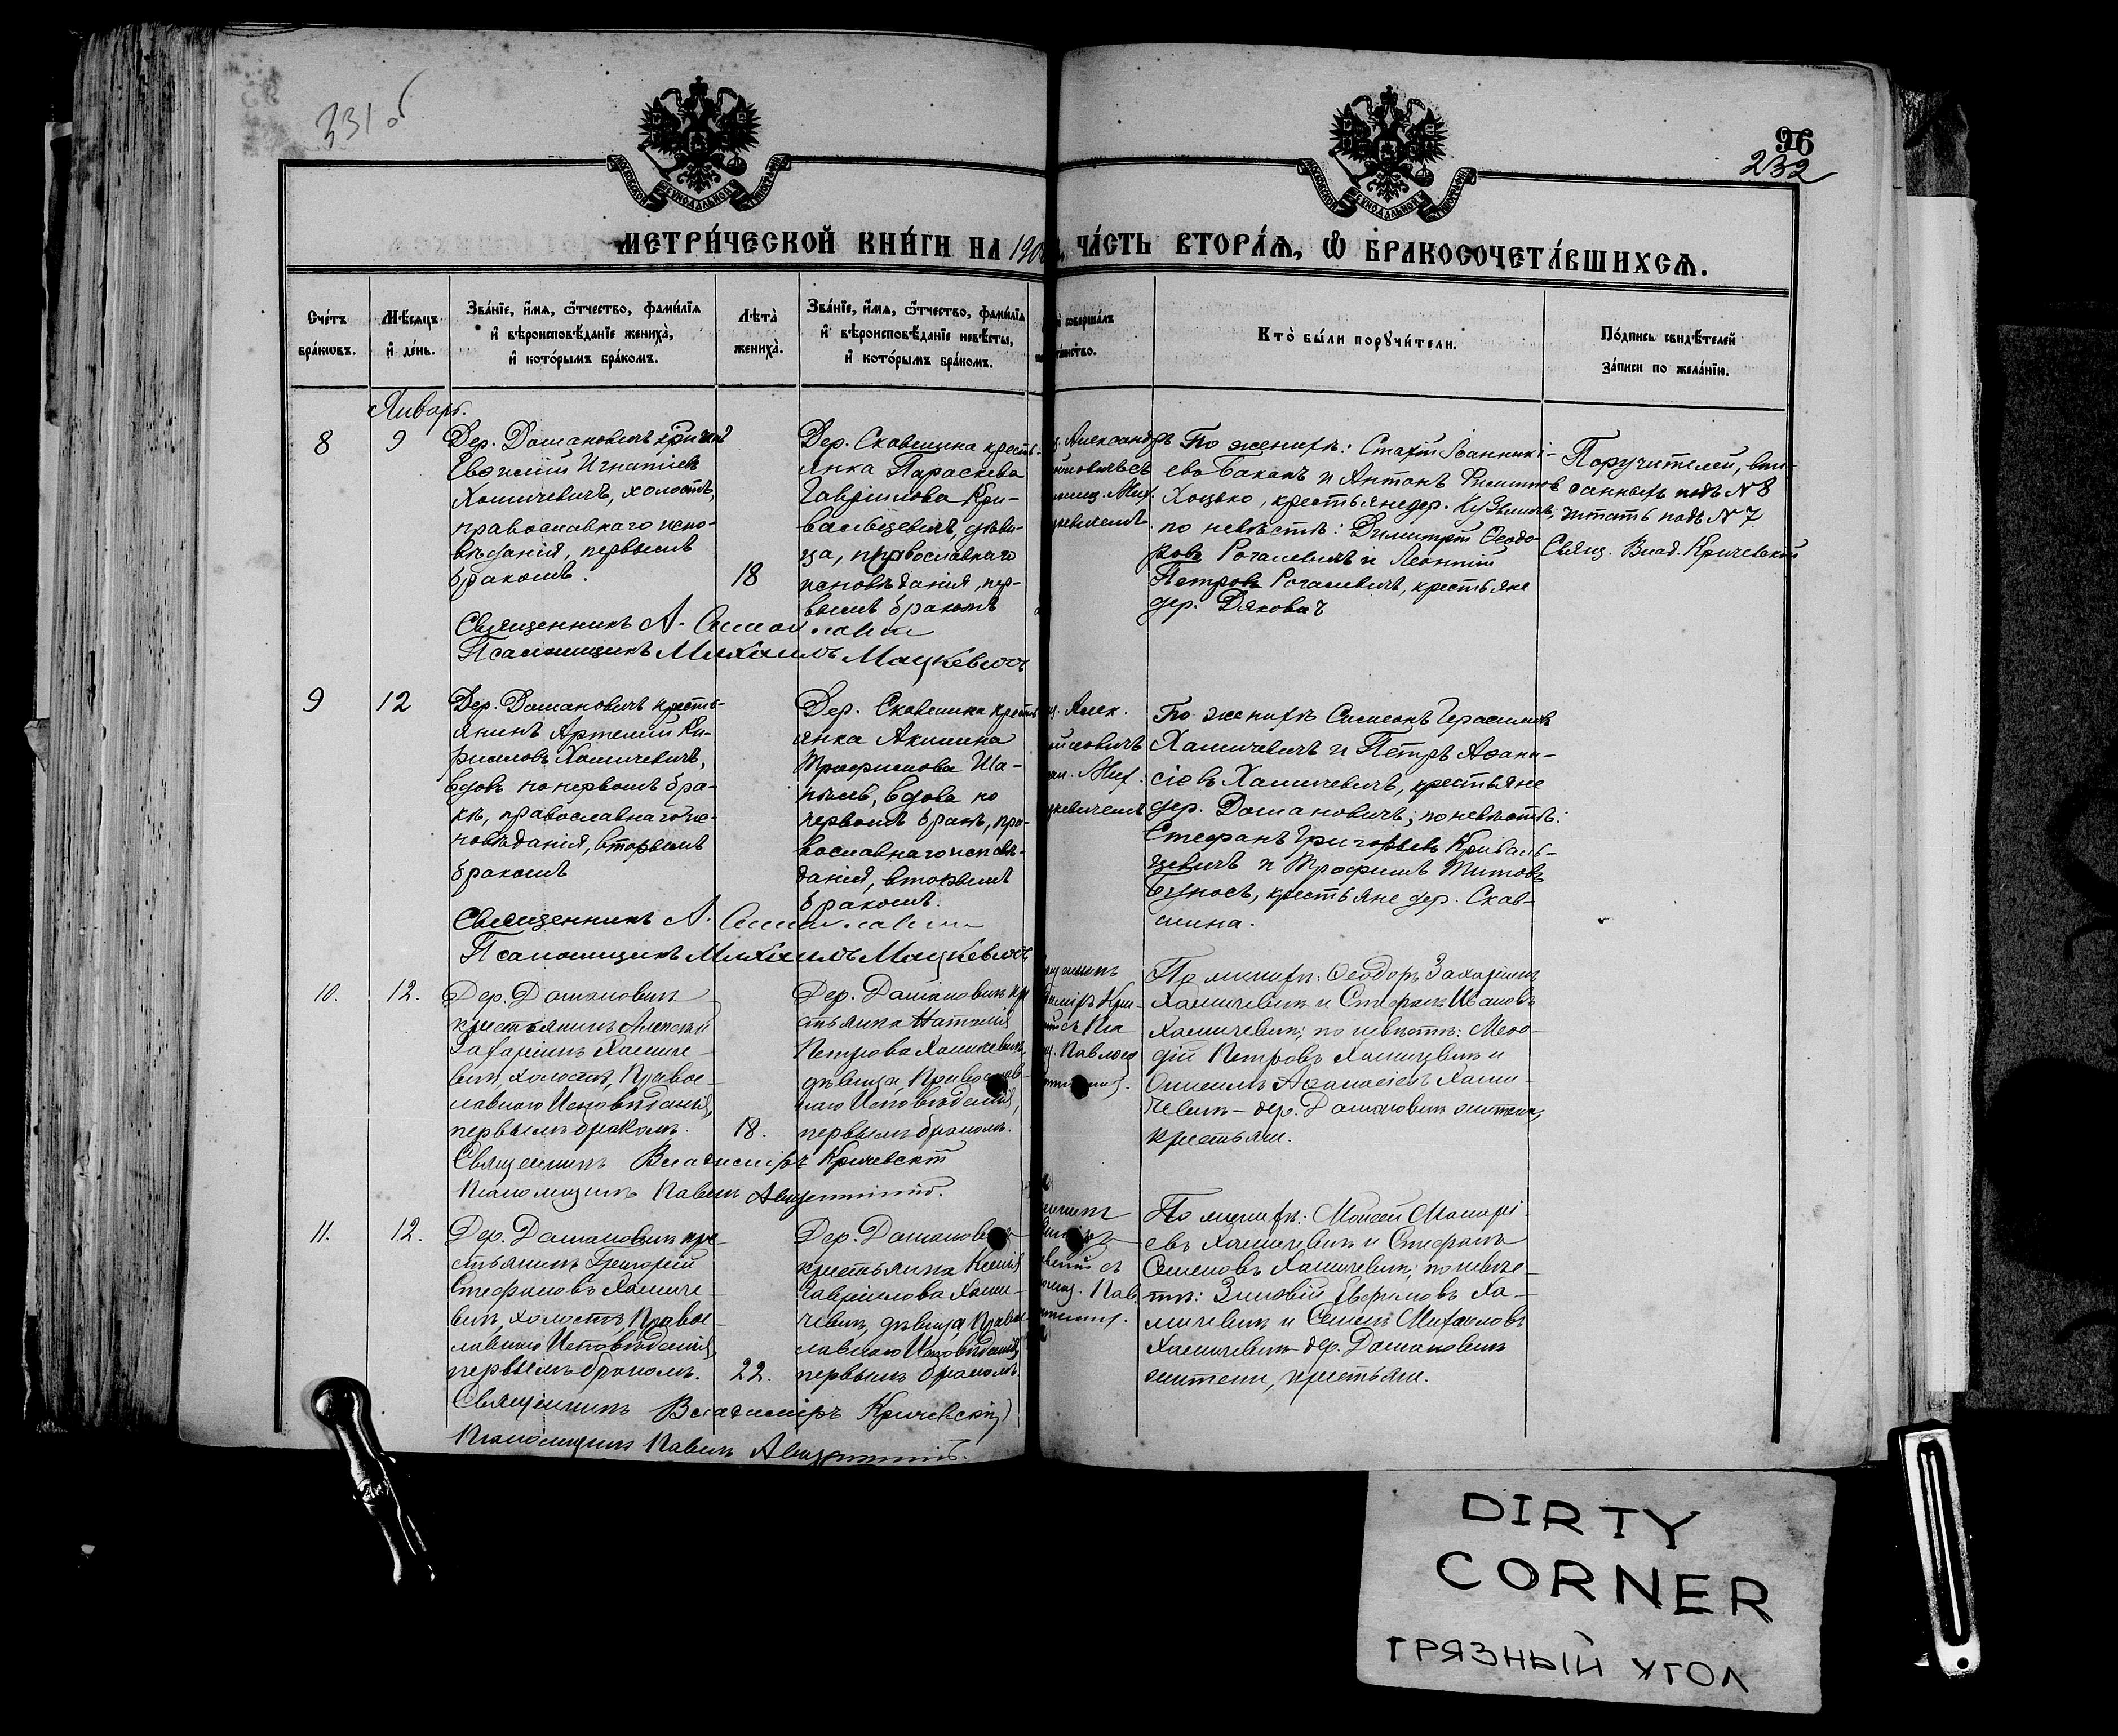 331 б
96
232
МОСКОВСКОЙ СѴНОДАЛЬНОЙ ТИПОГРАФІИ
МОСКОВСКОЙ СѴНОДАЛЬНОЙ ТИПОГРАФІИ
МЕТРИ́ЧЕСКОЙ КНИ́ГИ НА 190 ЧА́СТЬ ВТОРА́Ѧ, Ѡ҆ БРАКОСОЧЕТА́ВШИХСѦ.
Сче́тъ бра́кѡвъ.
Мѣ́сяцъ и҆ де́нь.
Зва́нїе, и҆́мѧ, ѻ҆́тчество, фами́лїѧ
и҆ вѣроисповѣ́данїе жениха̀,
и҆ кото́рымъ бра́комъ.
Лѣта̀ жениха̀.
Зва́нїе, и҆́мѧ, ѻ҆́тчество, фами́лїѧ
и҆ вѣроисповѣ́данїе невѣ́сты,
и҆ кото́рымъ бра́комъ.
соверша́лъ
Кто̀ бы́ли порꙋчи́тели.
По́дпись свидѣ́телей
за́писи по жела́нїю.
Январь.
8
9
Дер. Домановичъ
Евфимій Игнатіевъ
Хомичевичъ, холостъ,
православнаго испо-
вѣданія, первымъ
бракомъ.
18
Дер. Скавшина кресть-
янка Параскева
Гавріилова Кри-
вальцевичъ, дѣви-
ца, православнаго
исповѣданія, пер-
вымъ бракомъ
Александръ
Мих.
По женихѣ: Іоанники-
евъ Бакачъ и Антонъ
Хоцько, крестьяне дер.
по невѣстѣ: Димитрій Ѳеодо-
ровъ Рогалевичъ и Леонтій
Петровъ Рогалевичъ, крестьяне
дер. Дяковичъ
Поручителей, впи-
санныхъ подъ № 8
читать подъ № 7
Свящ. Влад. Кричевскій
Священникъ А.
Псаломщикъ Михаилъ Мацкевичъ
9
12
Дер. Домановичъ кресть-
янинъ Артемій Ки-
рилловъ Хомичевичъ,
вдовъ по первомъ бра-
кѣ, православнаго ис-
повѣданія, вторымъ
бракомъ
Дер. Скавшина кресть
янка Акилина
Трофимова Ша-
вдова по
первомъ бракѣ, пра-
вославнаго исповѣ-
данія, вторымъ
бракомъ.
Алек.
Мих.
По женихѣ Симеонъ Герасимовъ
Хомичевичъ и Петръ Аѳана-
сіевъ Хомичевичъ, крестьяне
дер. Домановичъ; по невѣстѣ:
Стефанъ Григорьевъ Криваль-
цевичъ и Трофимъ Титовъ
крестьяне дер. Скав-
шина.
Священникъ А.
Псаломщикъ Михаилъ Мацкевичъ
10.
12.
Дер. Домановичъ
крестьянинъ Алексій
Захаріинъ Хомиче-
вичъ, холостъ, Правос-
лавнаго Исповѣданія,
первымъ бракомъ.
18.
Дер. Домановичъ кре
стьянка Наталія
Петрова Хомичевичъ,
дѣвица, Православ
наго Исповѣданія,
первымъ бракомъ.
Павломъ
По женихѣ: Ѳеодоръ Захаріинъ
Хомичевичъ и Стефанъ Ивановъ
Хомичевичъ; по невѣстѣ: Меѳо-
дій Петровъ Хомичевичъ и
Аѳанасіевъ Хоми-
чевичъ – дер. Домановичъ жители,
крестьяне.
Священникъ Владиміръ Кричевскій
Псаломщикъ Павелъ
11.
12.
Дер. Домановичъ кре-
стьянинъ Григорій
Стефановъ Хомиче-
вичъ, холостъ, Правос-
лавнаго Исповѣданія,
первымъ бракомъ.
22.
Дер. Домановичъ
крестьянка Ксенія
Гавріилова Хоми-
чевичъ, дѣвица, Правос
лавнаго Исповѣданія,
первымъ бракомъ.
Пав.
По женихѣ: Моисей Макарі-
евъ Хомичевичъ и Стефанъ
Семеновъ Хомичевичъ; по невѣс-
тѣ: Зиновій Евфимовъ Хо-
мичевичъ и Семенъ Михаиловъ
Хомичевичъ дер. Домановичъ
жители, крестьяне.
Священникъ Владиміръ Кричевскій
Псаломщикъ Павелъ
DIRTY
CORNER
ГРЯЗНЫЙ УГОЛ